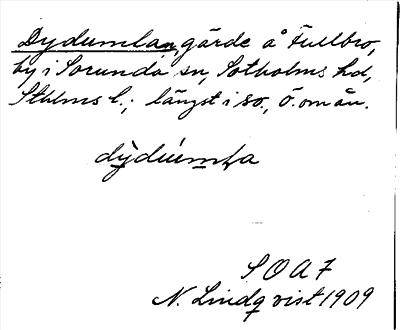 Dydumlan, gärde å Fullbro,
by i Sorunda sn, Sotholms hd,
Sthlms l.; längst i so., ö. om ån.
dỳdúmła
S O A F
N. Lindqvist 1909